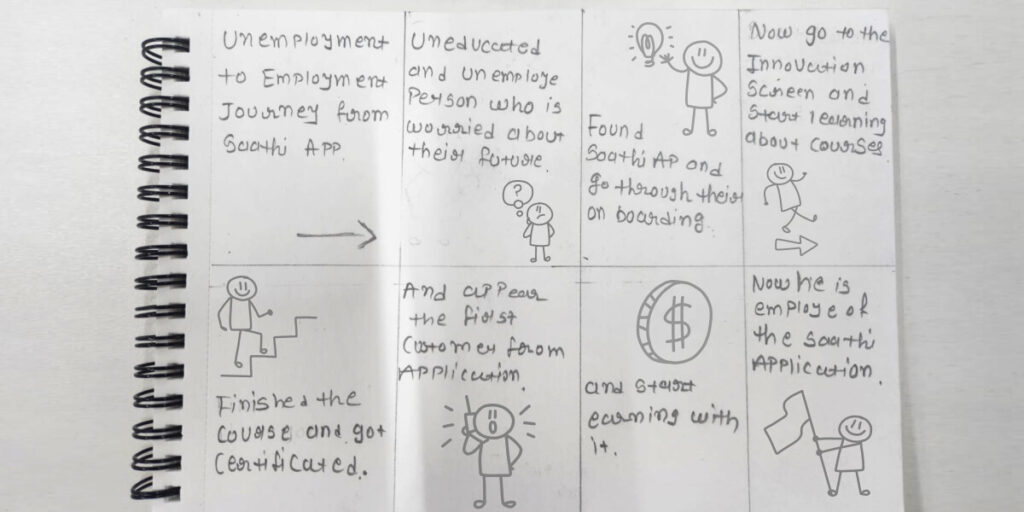 Unemployment
to Employment
Journey from
Saathi App.
Uneducated
and unemploye
Person who is
worried about
their future.
?
Found
Saathi AP and
go through their
on boarding.
Now go to the
Innovation
Screen and
Start learning
about courses
Finished the
Course and got
Certificated.
And appear
the first
Customer from
Application.
$
and start
earning with
it.
Now he is
employe of
the saathi
Application.